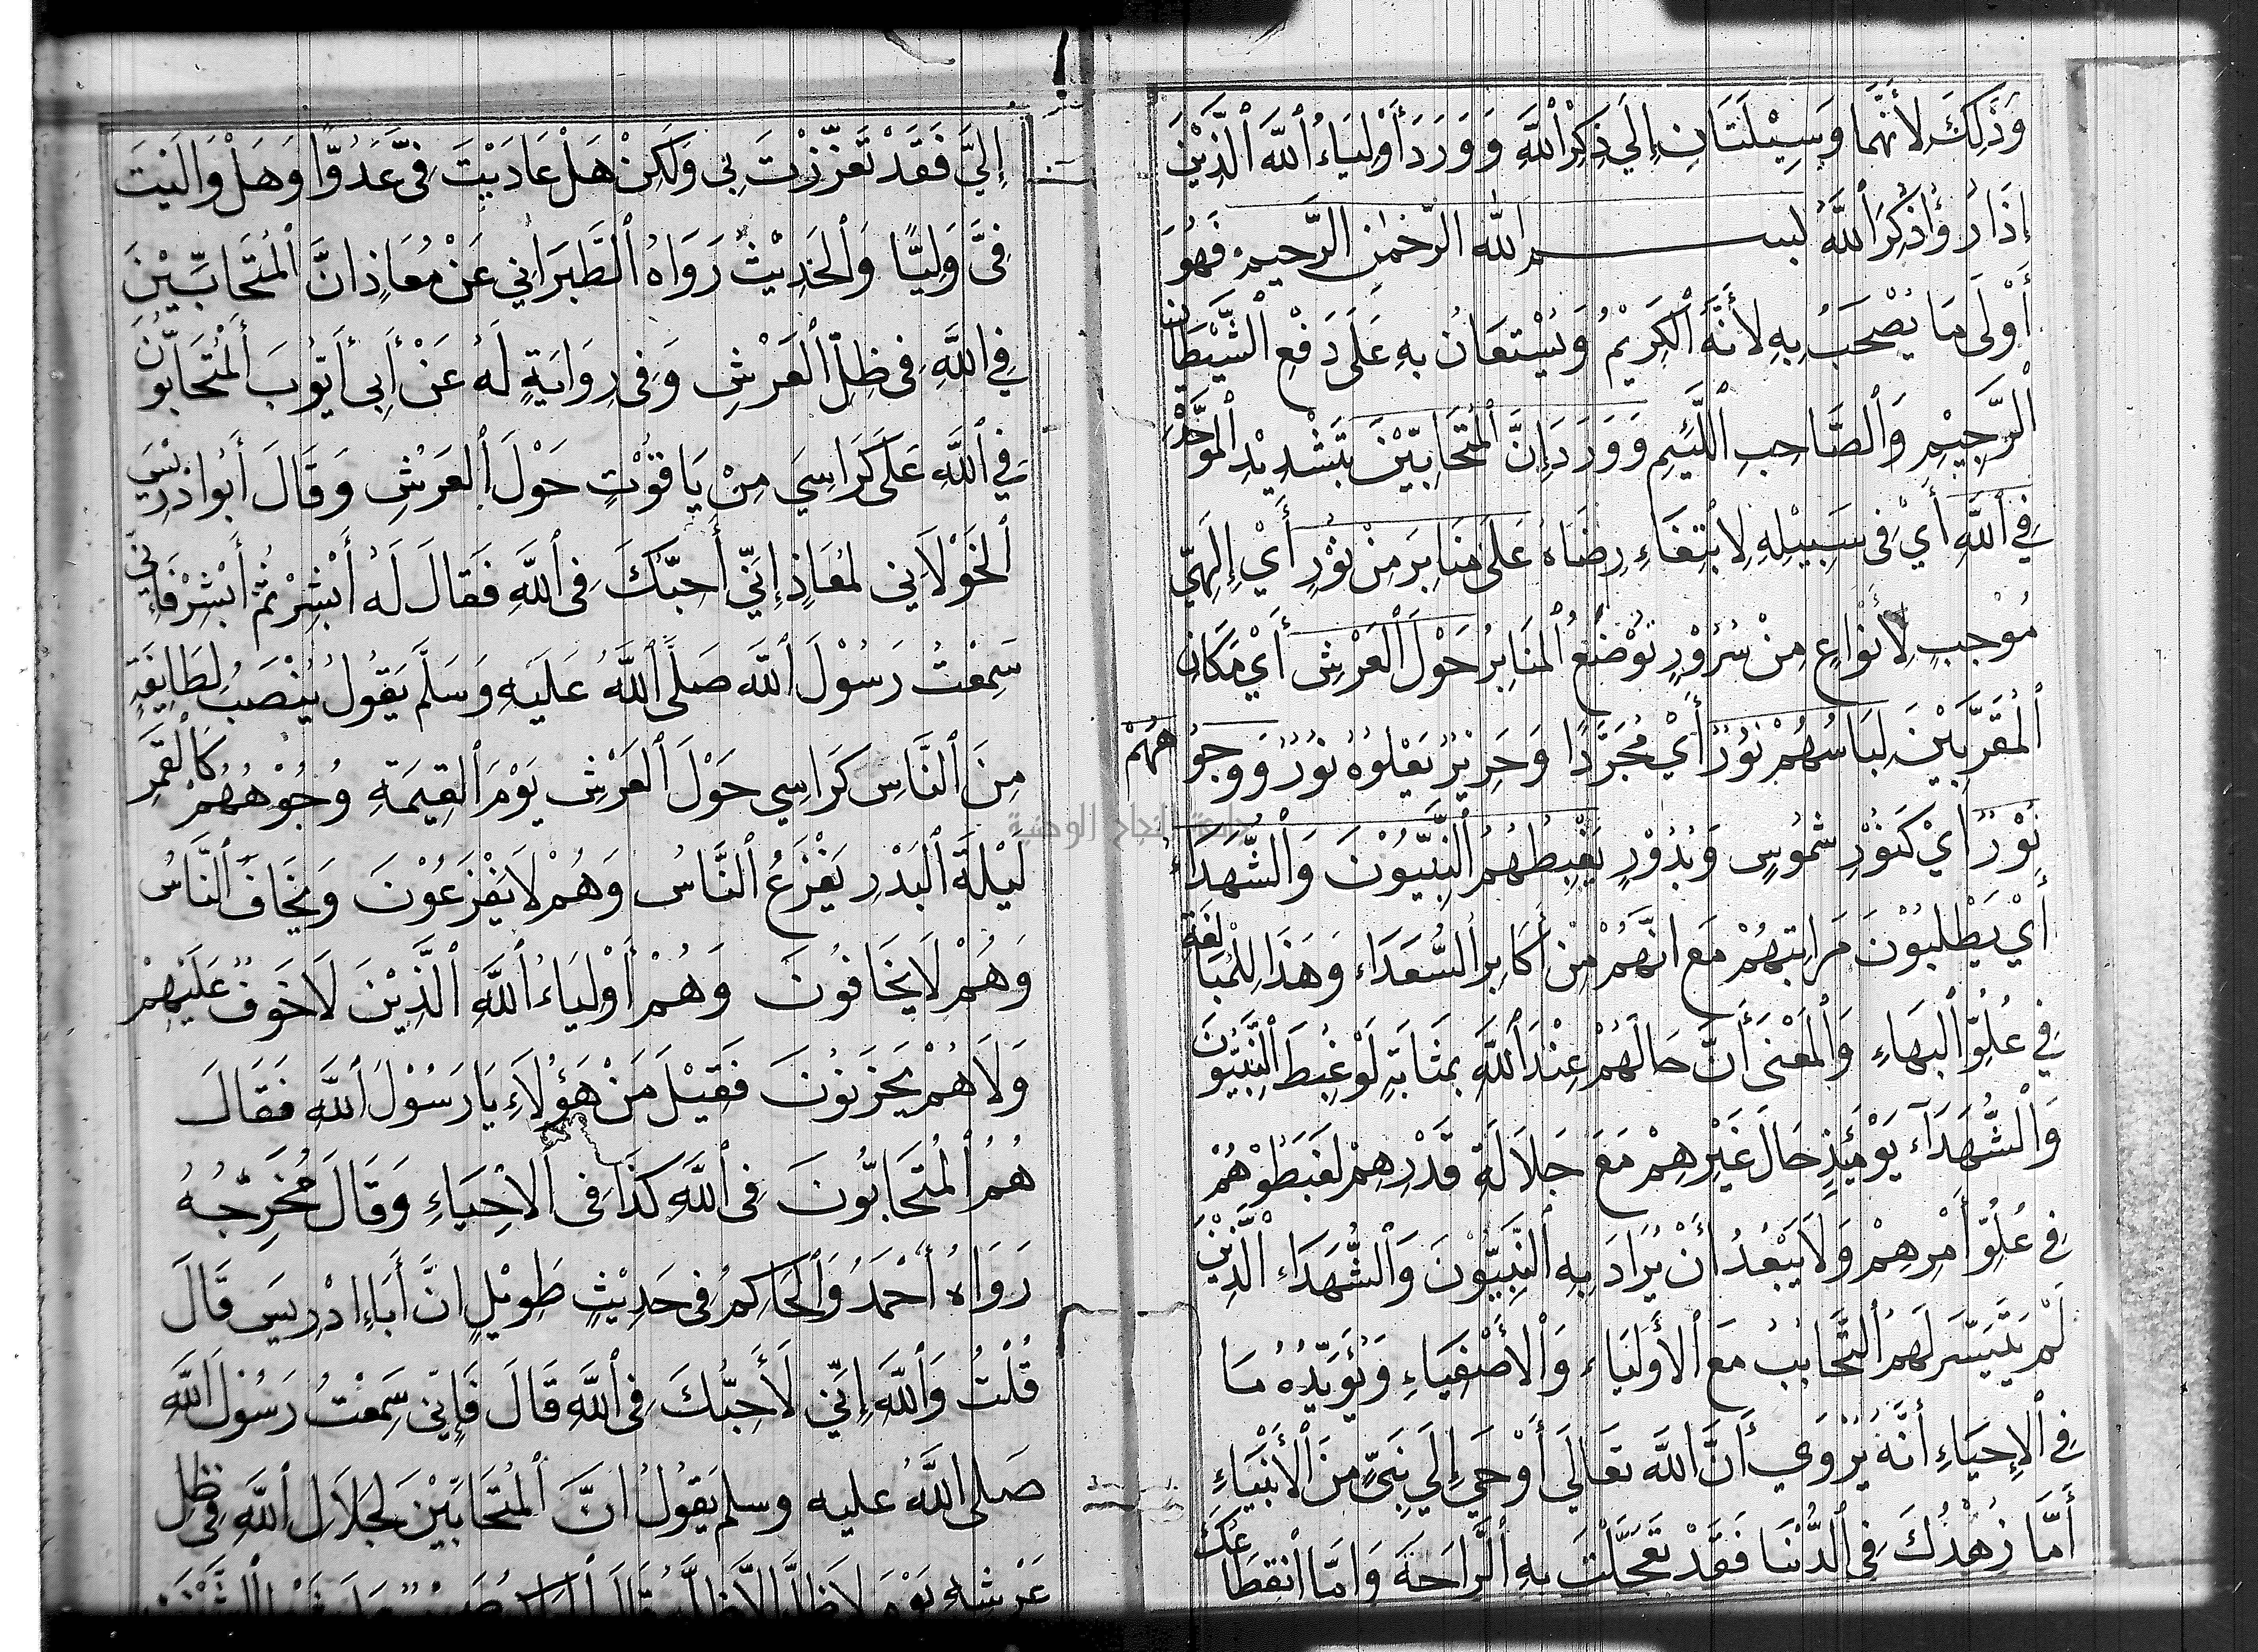 وَذَلِكَ لِأَنَّهُمَا وَسِيْلَتَانِ إِلَي ذِكْرِ ٱللَّهِ وَوَرَدَ أَوْلِيَاءُ ٱللَّهِ ٱلَّذِيْنَ
إِذَا رُؤُا ذُكِرَ ٱللَّهُ لبسم الله الرّحمٰن الرَّحيم فَهُوَ
أَوْلَى مَا يُصْحَبُ بِهِ لأَنَّهُ ٱلْكَرِيْمُ وَيُسْتَعَانُ بِهِ عَلَى دَفْعِ ٱلشَّيْطَانِ
ٱلرَّجِيْمِ وَٱلصَّاحِبِ ٱللَّئِيمِ وَوَرَدَ إِنَّ ٱلْمُتَحَابِّيْنَ بِتَشْدِيْدِ ٱلْمُوَحَّدَةِ
فِي ٱللَّهِ أَيْ فِى سَبِيْلِهِ لِابْتِغَاءِ رِضَاهُ عَلَى مَنَابِرَ مِنْ نُوْرٍ أَيْ إِلَهِيّ
مُوْجِبٍ لِأَنْوَاعٍ مِنْ سُرُوْرٍ تُوْضَعُ ٱلْمَنَابِرُ حَوْلَ ٱلْعَرْشِ أَيْ مَكَانِ
ٱلْمُقَرَّبِيْنَ لِبَاسُهُمْ نُوْرٌ أَيْ مُجَرَّدًا وَحَرِيْرٌ يَعْلُوهُ نُوْرٌ وَوُجُوهُهُمْ
نُوْرٌ أَيْ كَنُوْرِ شُمُوسٍ وَبُدُوْرٍ يَغْبِطُهُمُ ٱلنَّبِيُّوْنَ وَٱلشُّهَدَاءُ
أَيْ يَطْلُبُوْنَ مَرَاتِبَهُمْ مَعَ انَّهُمْ مِنْ أَكَابِرِ ٱلسُّعَدَاءِ وَهَذَا لِلْمُبَالَغَةِ
فِي عُلُوِّ ٱلْبَهَاءِ وَٱلْمَعْنَى أَنَّ حَالَهُمْ عِنْدَ ٱللَّهِ بِمَثَابَةِ لَوْ غَبِطَ ٱلنَّبِيُّونَ
وَٱلْشُّهَدَآء يَوْمَئِذٍ حَالَ غَيْرِهِمْ مَعَ جَلَالَةِ قَدْرِهِمْ لَغَبَطُوْهُمْ
فِي عُلُوِّ أَمْرِهِمْ وَلَا يَبْعُدُ أَنْ يُرَادَ بِهِ ٱلنَّبِيُّوْنَ وَٱلْشُّهَدَاءِ ٱلَّذِيْنَ
لَمْ يَتَيَسَّرْ لَهُمُ ٱلتَّحَابُبُ مَعَ ٱلْأَوْلِيَاءِ وَٱلْأَصْفِيَاءِ وَيُؤَيِّدُهُ مَا
فِي ٱلْإِحِيَاءِ أَنَّهُ يُرْوَي أَنَّ ٱللَّهَ تَعَالَي أَوْحَي إِلَي نَبِيٍّ مِنَ ٱلْأَنْبِيَاءِ
أَمَّا زُهْدُكَ فِي ٱلدُّنْيَا فَقَدْ تَعَجَّلْتَ بِهِ ٱلرَّاحَةَ وَامَّا ٱنْقِطَاعُكَ
إِلَيَّ فَقَدْ تَعَزَّزْتَ بِي وَلَكِنْ هَلْ عَادَيْتَ فِيَّ عَدُوًّا وَهَلْ وَالَيْتَ
فِيَّ وَلِيًّا وَٱلْحَدِيْثُ رَوَاهُ ٱلطَّبَرَانِي عَنْ مُعَاذٍ انَّ ٱلْمُتَحَابِّيْنَ
فِي اللَّهِ فِى ظِلِّ ٱلْعَرْشِ وَفِى رِوَايَةٍ لَهُ عَنْ أَبِي أَيُّوبَ ٱلْمُتَحَابُّونَ
فِي ٱللَّهِ عَلَى كَرَاسِيَ مِنْ يَاقُوْتٍ حَوْلَ ٱلْعَرْشِ وَقَالَ أَبُوا دْرِيْسَ
ٱلْخَوْلَانِي لِمُعَاذٍ إِنِّي أُحِبُّكَ فِى ٱللَّهِ فَقَالَ لَهُ أَبْشِرْ ثُمَّ أَبْشِرْ فَإِنِّي
سَمِعْتُ رَسُوْلَ ٱللَّهِ صَلَّى ٱللَّهُ عَلَيْهِ وَسَلَّمَ يَقُولُ يُنْصَبُ لِطَايِفَةٍ
مِنَ ٱلنَّاسِ كَرَاسِي حَوْلَ ٱلْعَرْشِ يَوْمَ ٱلْقِيَمَةِ وُجُوْهُهُمْ كَالْقَمَرِ
لَيْلَةَ ٱلْبَدْرِ يَفْزَعُ ٱلنَّاسُ وَهُمْ لَا يَفْزَعُوْنَ وَيَخَافُ ٱلنَّاسُ
وَهُمْ لَا يَخَافُونَ وَهُمْ أَوْلِيَاءُ ٱللَّهِ ٱلَّذِيْنَ لَا خَوْفٌ عَلَيْهِمْ
وَلَا هُمْ يَحْزَنُونَ فَقِيْلَ مَنْ هَؤُلَاءِ يَا رَسُوْلَ ٱللَّهِ فَقَالَ
هُمُ ٱلْمُتَحَابُّونَ فِي ٱللَّهِ كَذَا فِي ٱلْاحْيَاءِ وَقَالَ مُخَرِّجُهُ
رَوَاهُ أَحْمَدُ وَٱلْحَاكِمُ فِى حَدِيْثٍ طَوِيْلٍ انَّ أَبَاءِ ادْرِيسَ قَالَ
قُلْتُ وَٱللَّهِ إِنِّي لَأُحِبُّكَ فِى ٱللَّهِ قَالَ فَإِنِّي سَمِعْتُ رَسُوْلَ ٱللَّهِ
صَلَى ٱللَّهُ عليه وسلم يَقُولُ انَّ ٱلْمُتَحَابِّيْنَ لِجَلَالِ ٱللَّهِ فِى ظِلِّ
عَرْشِهِ يَوْمَ لَا ظِلَّ إِلَّا ظِلُّهُ قَالَ
جامعة النجاح الوطنية